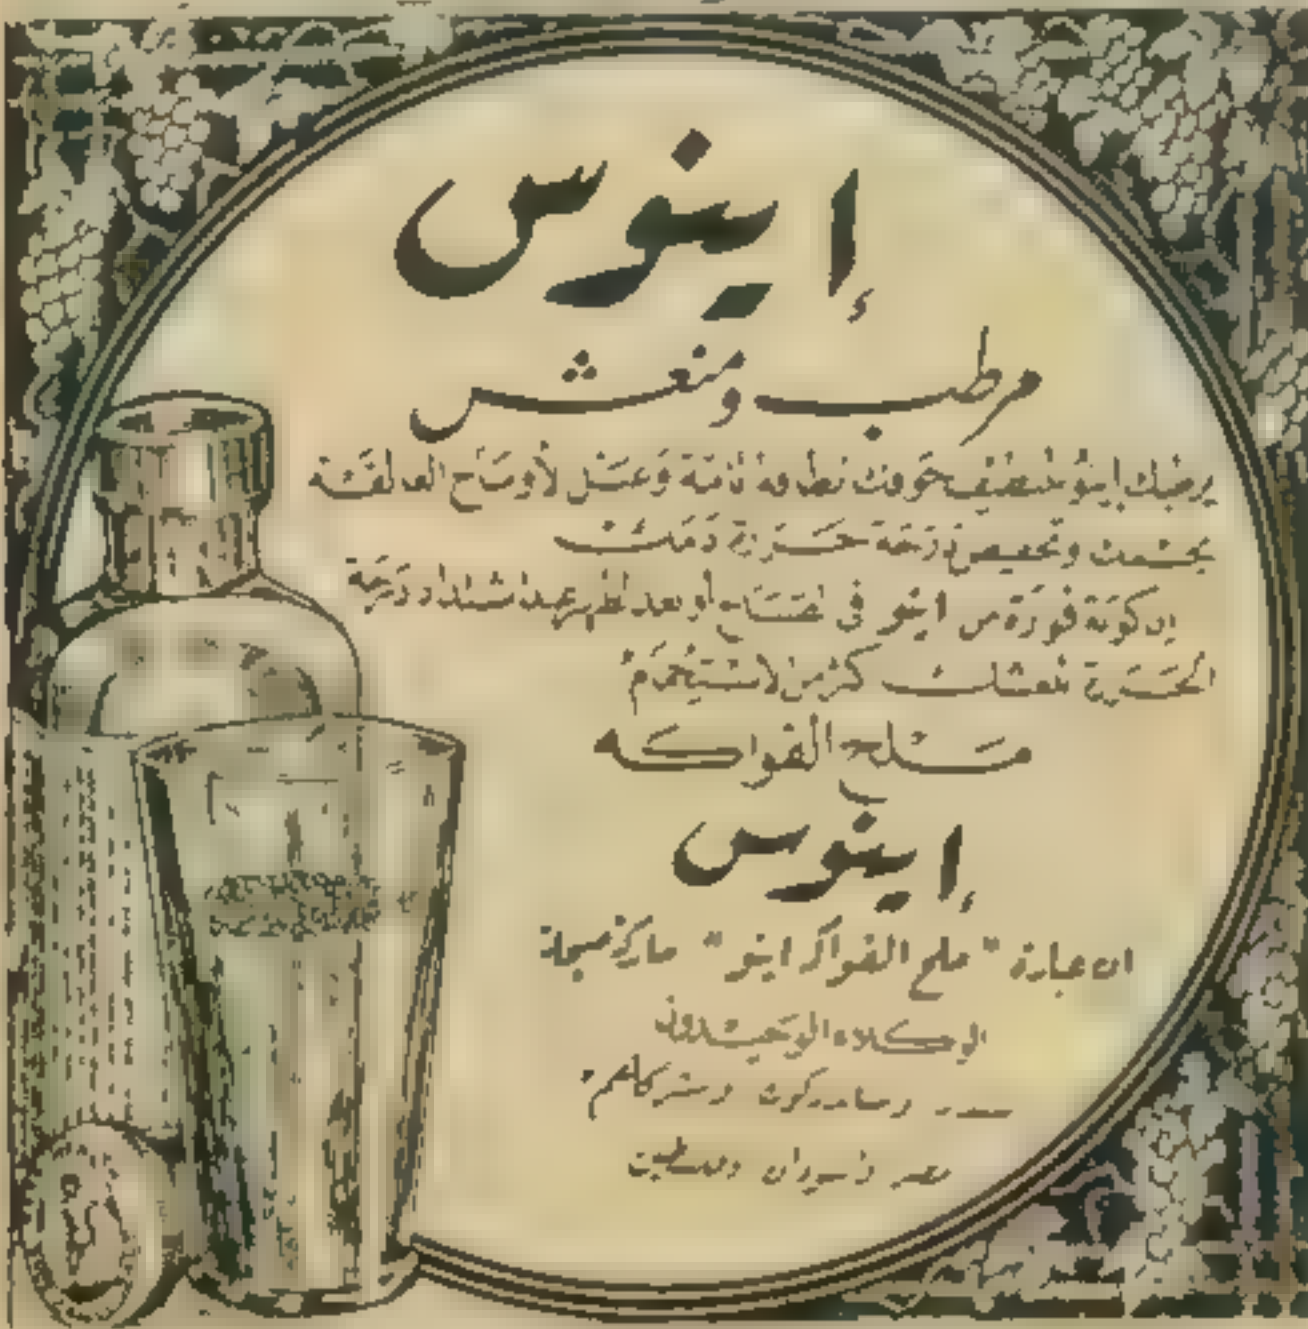 إينوس
مرطب ومنعش
يرطبك إينو بتنظيف جوفك نظافة تامة وغسل الأوساخ العالقة
بجسمك وتخفيض درجة حرارة دمك
ان كوبة فوارة من اينو في الصباح أو بعد الظهر عند اشتداد درجة
الحرارة تنعشك أكثر من الاستحمام
ملح الفواكه
إينوس
ان عبارة "ملح الفواكه اينو" ماركة مسجلة
الوكلاء الوحيدون
وشركاهم
مصر والسودان وفلسطين